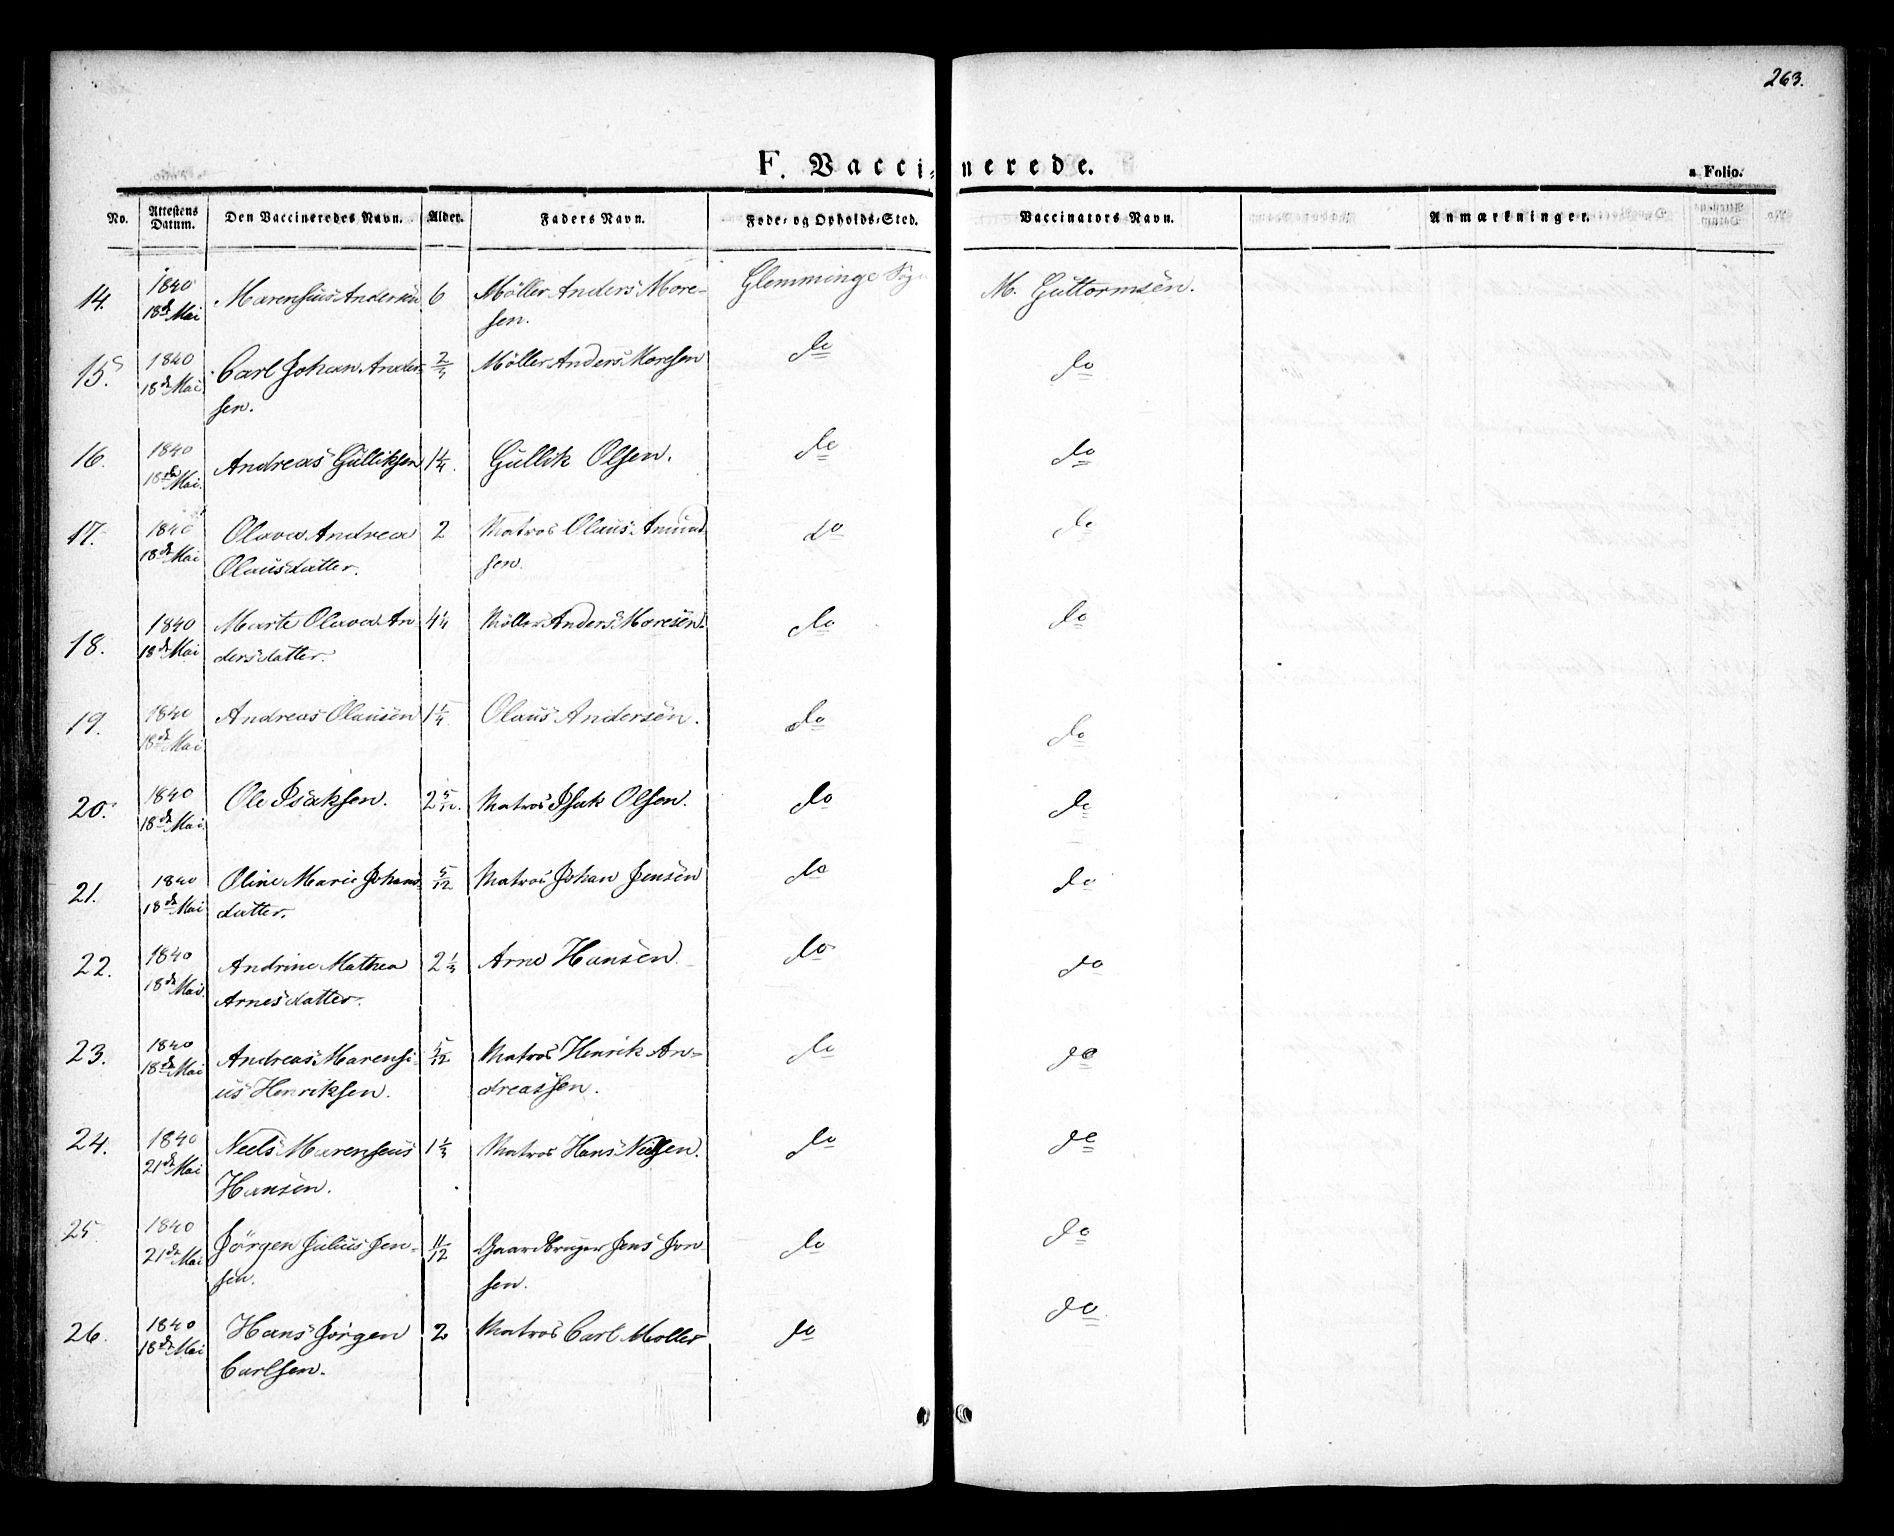 263.
F. Vaccinerede.
a Folio.
No. Attestens Datum. Den Vaccineredes Navn. Alder. Faders Navn. Føde- og Opholds-Sted. Vaccinators Navn. Anmærkninger.
14. 1840 Marensius Andersen 6 Møller Anders More- Glemminge Sogn M. Guttormsen.
18de Mai sen.
15. 1840 Carl Johan Ander- 2/3 Møller Anders Moresen do do
18de Mai sen.
16. 1840 Andreas Gulliksen 1 1/4. Gullik Olsen. do do
18de Mai.
17. 1840 Olava Andrea 2 Matros Olaus Amund- do do
18de Mai Olausdatter. sen.
18. 1840 Marte Olava An 4 1/4 Møller Anders Moresen. do do
18de Mai dersdatter.
19. 1840 Andreas Olausen 1 1/4. Olaus Andersen. do do
18de Mai
20. 1840 Ole Isaksen. 2 5/12. Matros Isak Olsen. do do
18de Mai.
21. 1840 Oline Marie Johans 5/12 Matros Johan Jensen do do
18de Mai datter.
22. 1840 Andrine Mathea 2 1/3 Arne Hansen do do
18de Mai. Arnesdatter.
23. 1840 Andreas Marensi- 5/12 Matros Henrik An- do do
18de Mai us Henriksen. dreassen.
24. 1840 Neels Marensius 1 1/3 Matros Hans Nielsen. do do
21de Mai Hansen.
25 1840 Jørgen Julius Jen- 11/12 Gaardbruger Jens Jon- do do
21de Mai sen. sen.
26. 1840 Hans Jørgen 2 Matros Carl Møller do do.
18de Mai Carlsen.